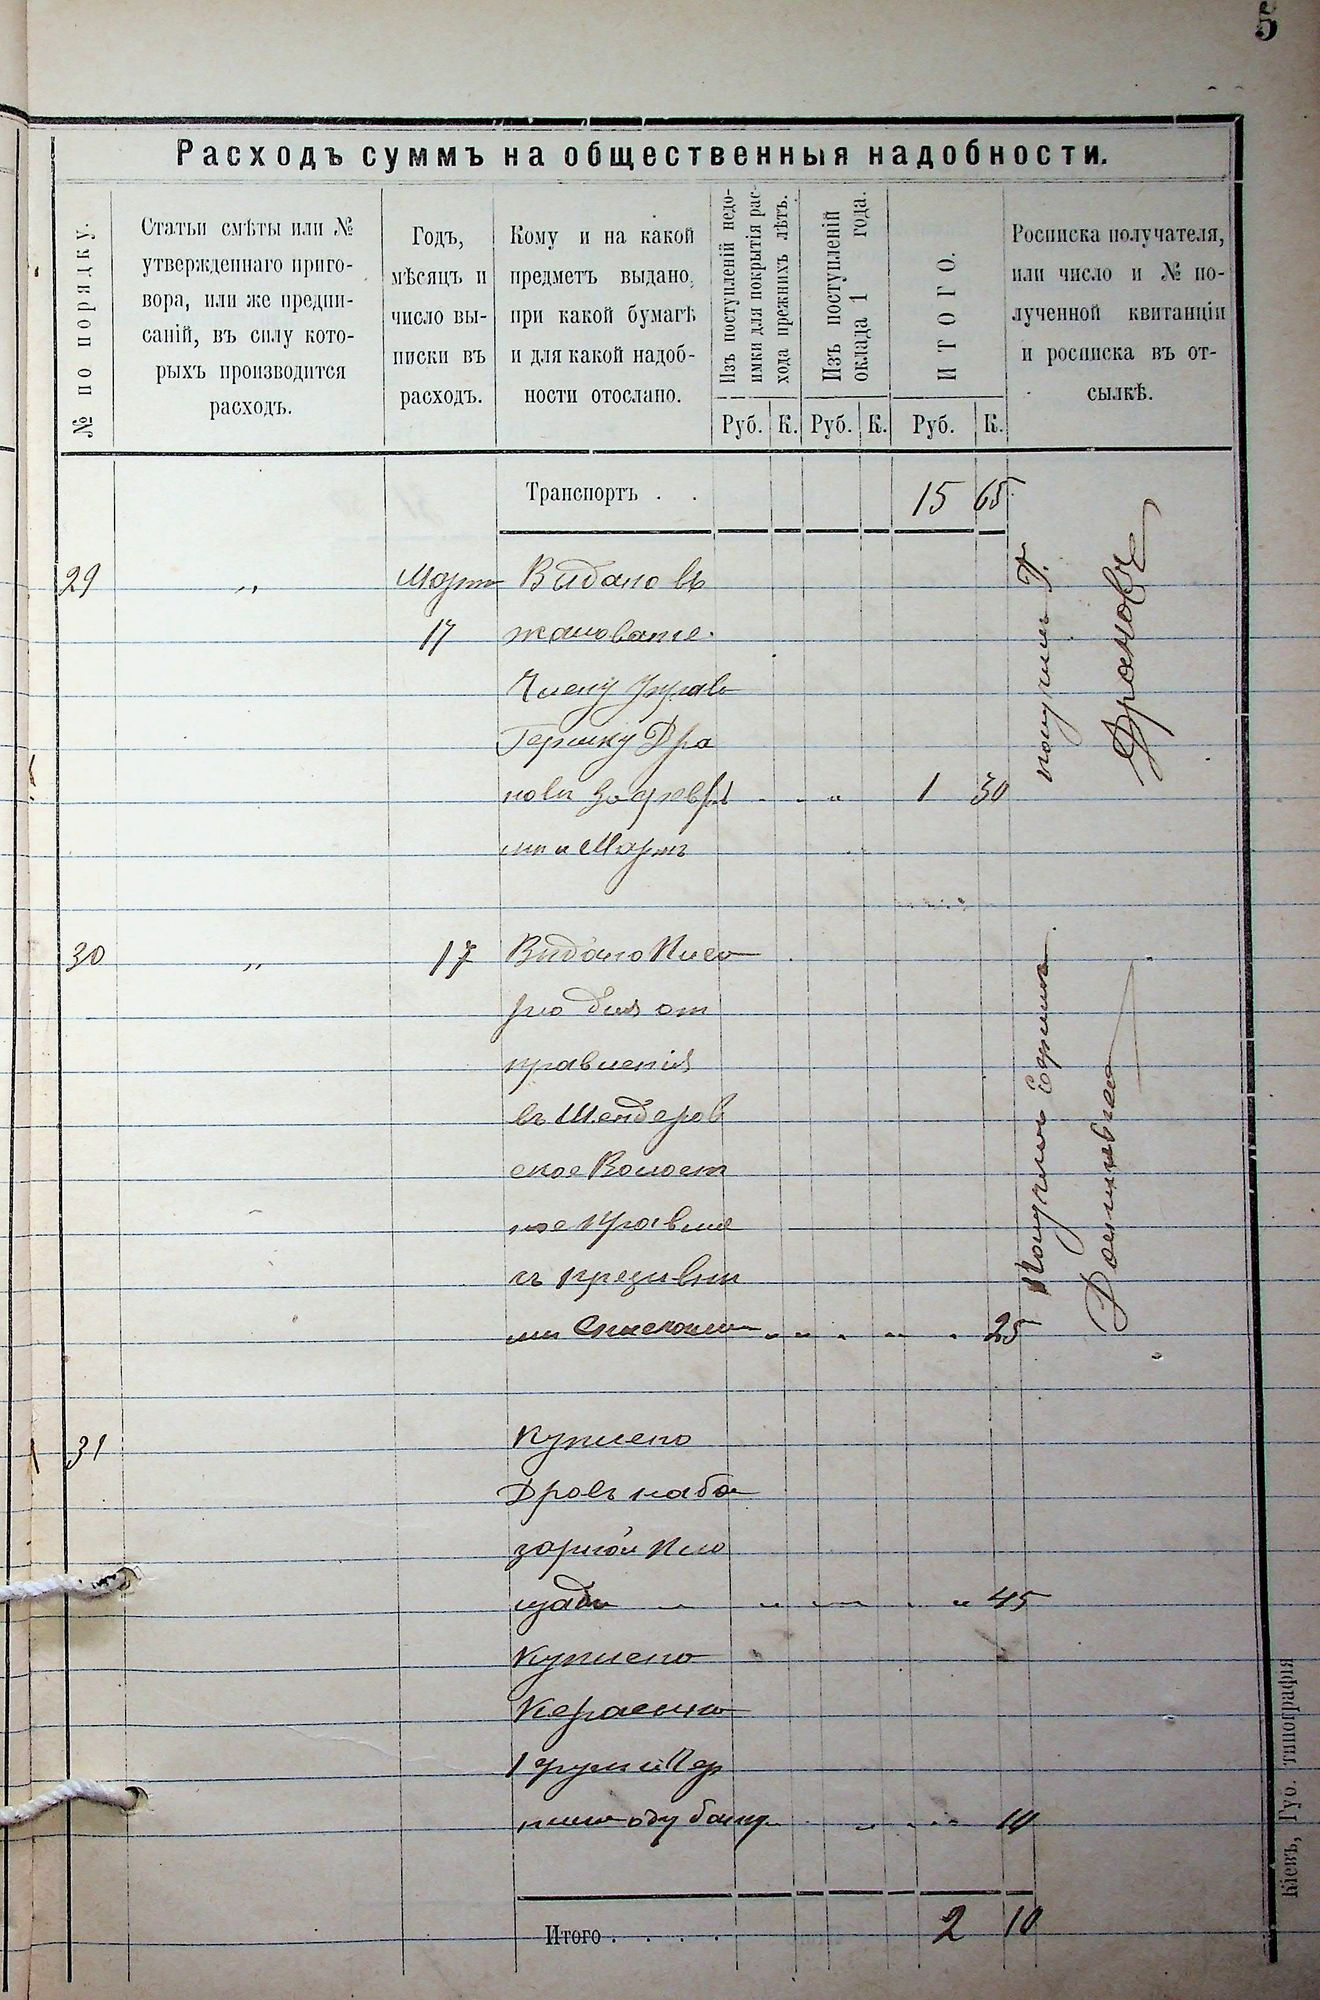 5
Расходъ суммъ на общественныя надобности.
№ по порядку.
Статьи смѣты или №
утвержденнаго приго-
вора, или же предпи-
саній, въ силу кото-
рыхъ производится
расходъ.
Годъ,
мѣсяцъ и
число вы-
писки въ
расходъ.
Кому и на какой
предметъ выдано,
при какой бумагѣ
и для какой надоб-
ности отослано.
Изъ поступленій недо-
имки для покрытія рас-
хода прежнихъ лѣтъ.
Изъ поступленій
оклада 1 года.
ИТОГО.
Росписка получателя,
или число и № по-
лученной квитанціи
и росписка въ от-
сылкѣ.
Руб. К. Руб. К. Руб. К.
Транспортъ . . 15 65
29 " Мартъ Видано въ
17 жалование
Члену Управ
Гершку Дра
нову за
1 30
ми и Мартъ
получилъ Г.
Драновъ
30 " 17 Видано Писа
рю для от
правленія
въ Шендеров
ское Волост
ное Правле
съ призивни
ми Списками 25
Получилъ
31 Куплено
Дровъ на ба
зарной Пло
щади 45
Куплено
Керасина
1 фунт и Чер
нилъ одну банку 10
Итого . . . . 2 10
Кіевъ, Губ. типографія